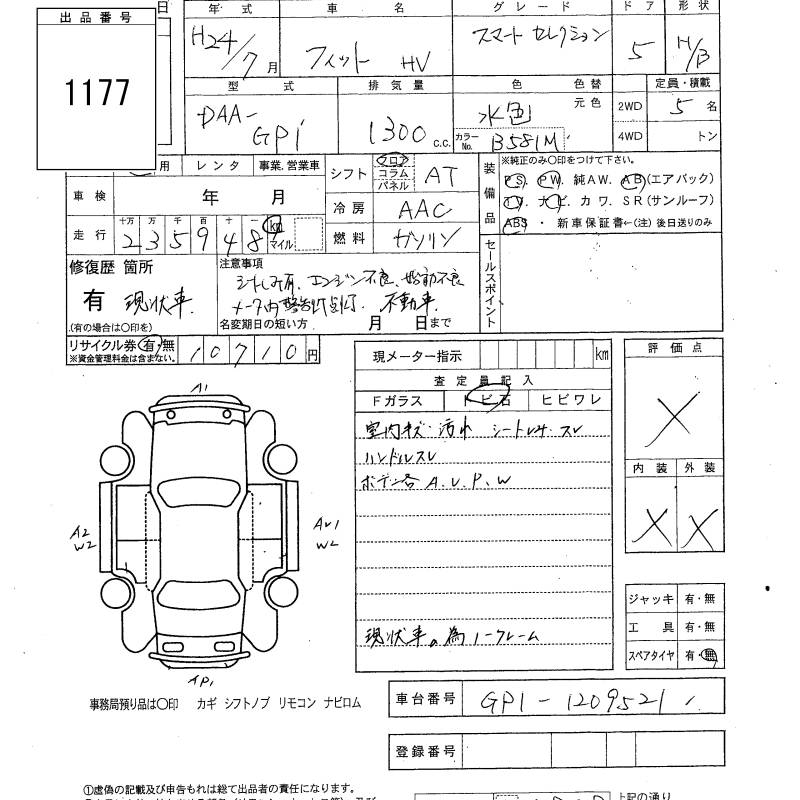 出品番号
1177
日
年式 車名 グレード ドア 形状
H24/7月 フィット HV スマートセレクション 5 H/B
型式 排気量 色 色替 定員・積載
DAA-GP1 1300c.c. 水色 元色 2WD 5名
カラーNo. B581M 4WD トン
用 レンタ 事業、営業車
車検 年 月
走行 十万 万 千 百 十 一
235948 km マイル
シフト フロア コラム パネル AT
冷房 AAC
燃料 ガソリン
装備品
※純正のみ〇印をつけて下さい。
PS. PW. 純AW. AB(エアバック)
TV. ナビ. カワ. SR(サンルーフ)
ABS ・ 新車保証書←(注)後日送りのみ
セールスポイント
修復歴 箇所
有 現状車
(有の場合は〇印を)
注意事項
シートしみ有、エンジン不良、始動不良
メータ内警告灯点灯、不動車、
名変期日の短い方 月 日まで
リサイクル券 有・無
※資金管理料金は含まない。
10710円
現メーター指示 km
査定員記入
Fガラス トビ石 ヒビワレ
室内キズ・汚れ シートレザースレ
ハンドルスレ
ボデー各 A.U.P.W
現状車の為ノークレーム
評価点
X
内装 外装
X X
A1
A2
W2
AU1
W2
AP1
ジャッキ 有・無
工具 有・無
スペアタイヤ 有・無
事務局預り品は〇印 カギ シフトノブ リモコン ナビロム
車台番号 GP1-1209521
登録番号
①虚偽の記載及び申告もれは総て出品者の責任になります。
上記の通り